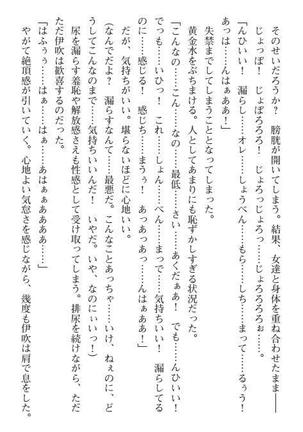 そのせいだろうか？　膀胱が開いてしまう。結果、女達と身体を重ね合わせたまま――
　じょっぽ！　じょぽろろろ！　じょろじょろっじょろろろろぉ……。
「んひいい！　漏らし……オレ……しょうべん……もら……しち……まって……るぅ！
あっは……んはぁああ！」
　失禁までしてしまうこととなってしまった。
　黄金水をぶちまける。人としてあまりにも恥ずかしすぎる状況だった。
「こんなの……こん……な……の……最低……さい　あくだぁあ！　でも……んひいい！
でっも……いいっ！　これ……しょん……べん……まっで……気持ちいい！　漏らしてる
の……いい……感じる！　感じ……まっう！　あっあっあっ……んはぁああ！」
　だが、気持ちがいい。堪らないほどに心地いい。
（なんでだよ？　漏らすなんて……最悪だ。こんなことあっちゃ……いけ、ねぇのに、ど
うしてこんなのまで……気持ちいいんだ！　いやだ。いや、なのにぃいっ！）
　尿を漏らす羞恥や解放感さえも性感として受け取ってしまう。排尿を続けながら、ただ
ただ伊吹は歓喜するのだった。
「はふぅ……はぁ……はぁ……はぁ……あはぁぁああああ」
　やがて絶頂感が引いていく。心地よい気怠さを感じながら、幾度も伊吹は肩で息をした。